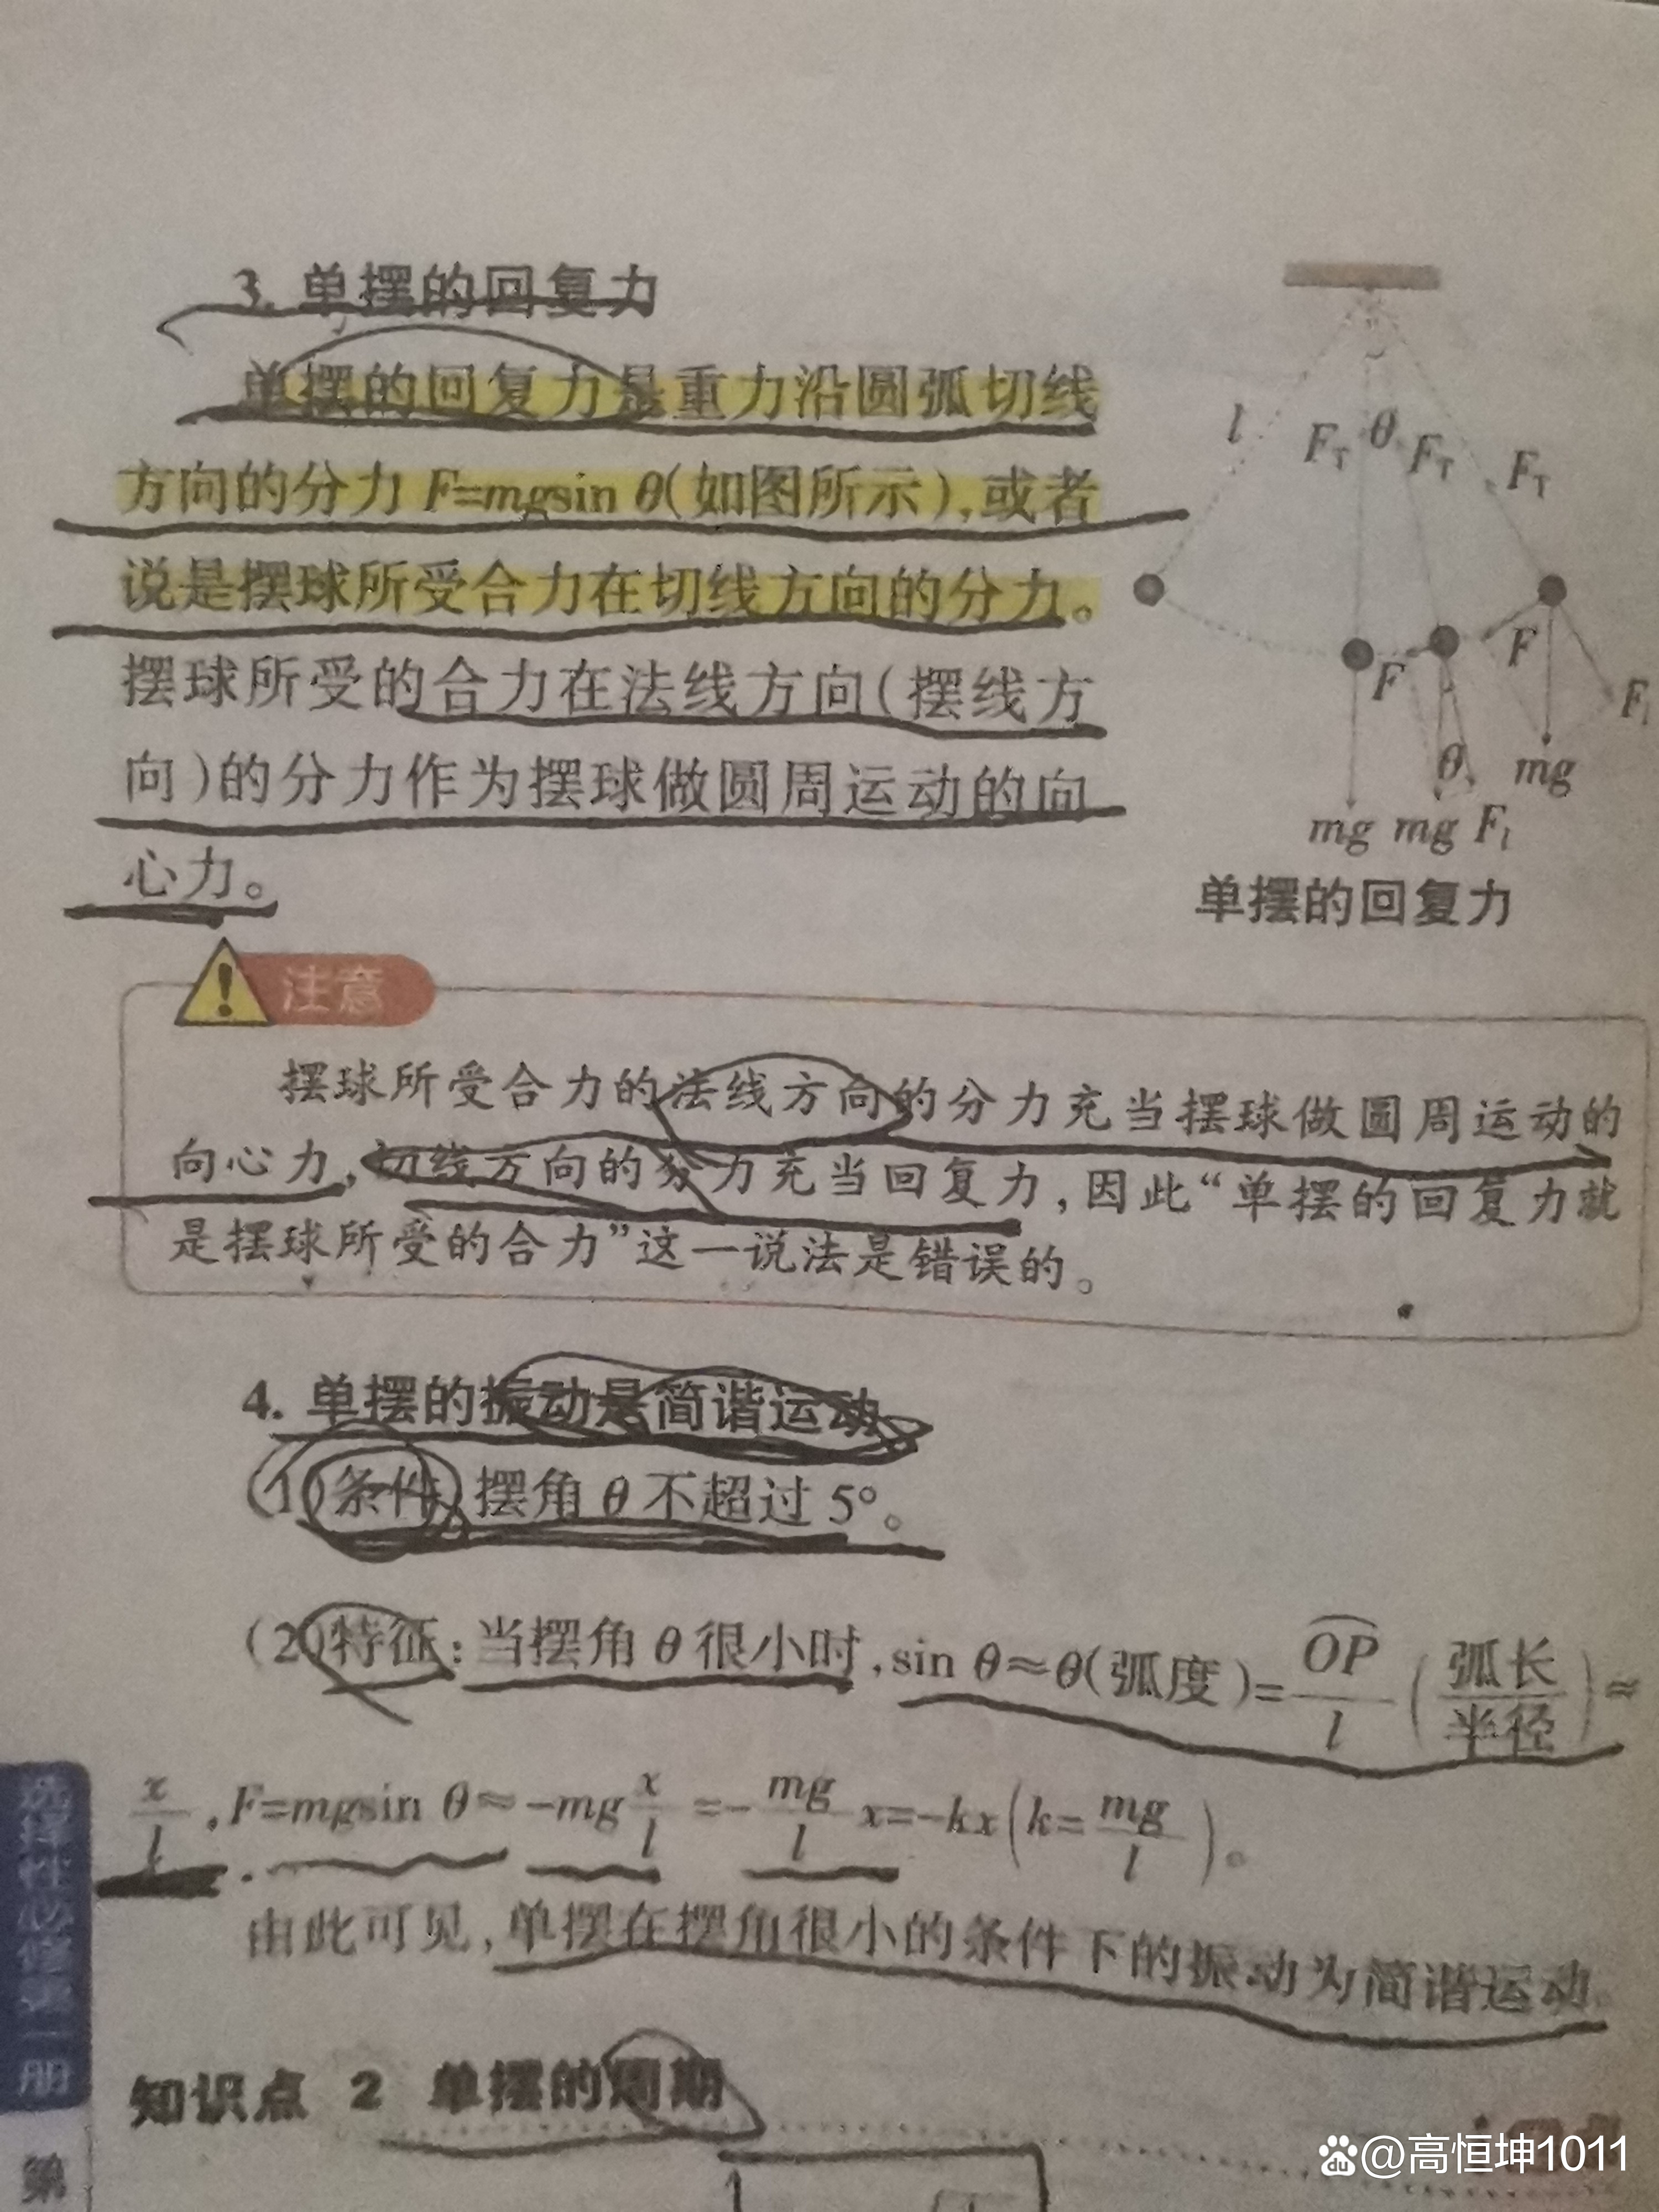 3. 单摆的回复力
单摆的回复力是重力沿圆弧切线
方向的分力 F=mgsin θ(如图所示),或者
说是摆球所受合力在切线方向的分力。
摆球所受的合力在法线方向(摆线方
向)的分力作为摆球做圆周运动的向
心力。
l
F_T θ F_T F_T
F F F_l
θ mg
mg mg F_l
单摆的回复力
注意
摆球所受合力的法线方向的分力充当摆球做圆周运动的
向心力,切线方向的分力充当回复力,因此“单摆的回复力就
是摆球所受的合力”这一说法是错误的。
4. 单摆的振动是简谐运动
(1)条件:摆角 θ 不超过 5°。
(2)特征:当摆角 θ 很小时,sin θ≈θ(弧度)=OP/l(弧长/半径)≈
x/l,F=mgsin θ≈-mg x/l=-mg/l x=-kx(k=mg/l)。
由此可见,单摆在摆角很小的条件下的振动为简谐运动
知识点 2 单摆的周期
选择性必修第一册
第
du @高恒坤1011